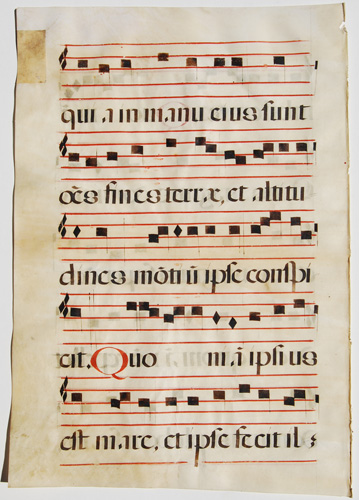 quia in manu eius sunt
oēs fines terræ, et altitu
dines mōtiū ipse conspi
cit. Quo m̄.ī ipsius
est mare, et ipse fecit ils